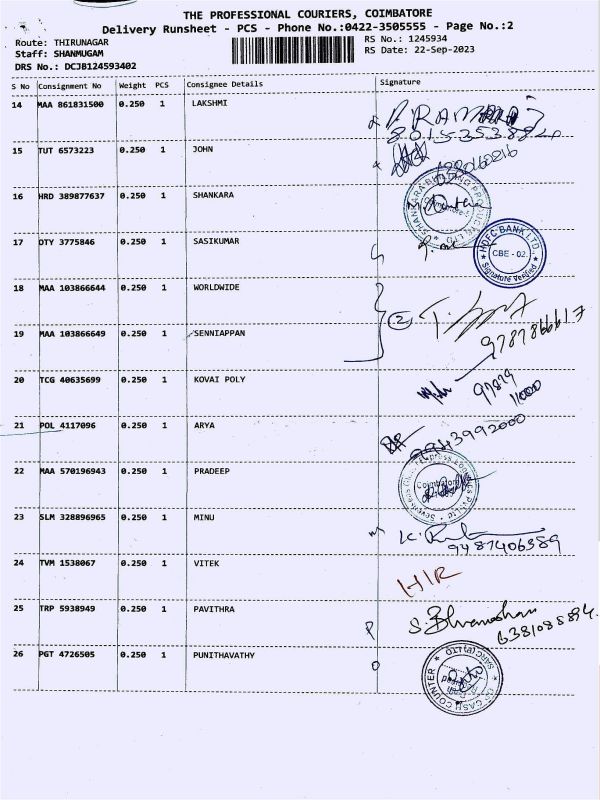 THE PROFESSIONAL COURIERS, COIMBATORE
Delivery Runsheet - PCS - Phone No.:0422-3505555 - Page No.:2
Route: THIRUNAGAR
Staff: SHANMUGAM
DRS No.: DCJB124593402
RS No.: 1245934
RS Date: 22-Sep-2023
S No Consignment No Weight PCS Consignee Details Signature
14 MAA 861831500 0.250 1 LAKSHMI
15 TUT 6573223 0.250 1 JOHN
16 HRD 389877637 0.250 1 SHANKARA
17 OTY 3775846 0.250 1 SASIKUMAR
HDFC BANK LTD.
CBE - 02.
Signature Verified
18 MAA 103866644 0.250 1 WORLDWIDE
19 MAA 103866649 0.250 1 SENNIAPPAN
2
9787866617
20 TCG 40635699 0.250 1 KOVAI POLY
97879
11000
21 POL 4117096 0.250 1 ARYA
9943992000
22 MAA 570196943 0.250 1 PRADEEP
Coimbatore
23 SLM 328896965 0.250 1 MINU
9487406389
24 TVM 1538067 0.250 1 VITEK
H/R
25 TRP 5938949 0.250 1 PAVITHRA
6381085894
26 PGT 4726505 0.250 1 PUNITHAVATHY
CASH COUNTER